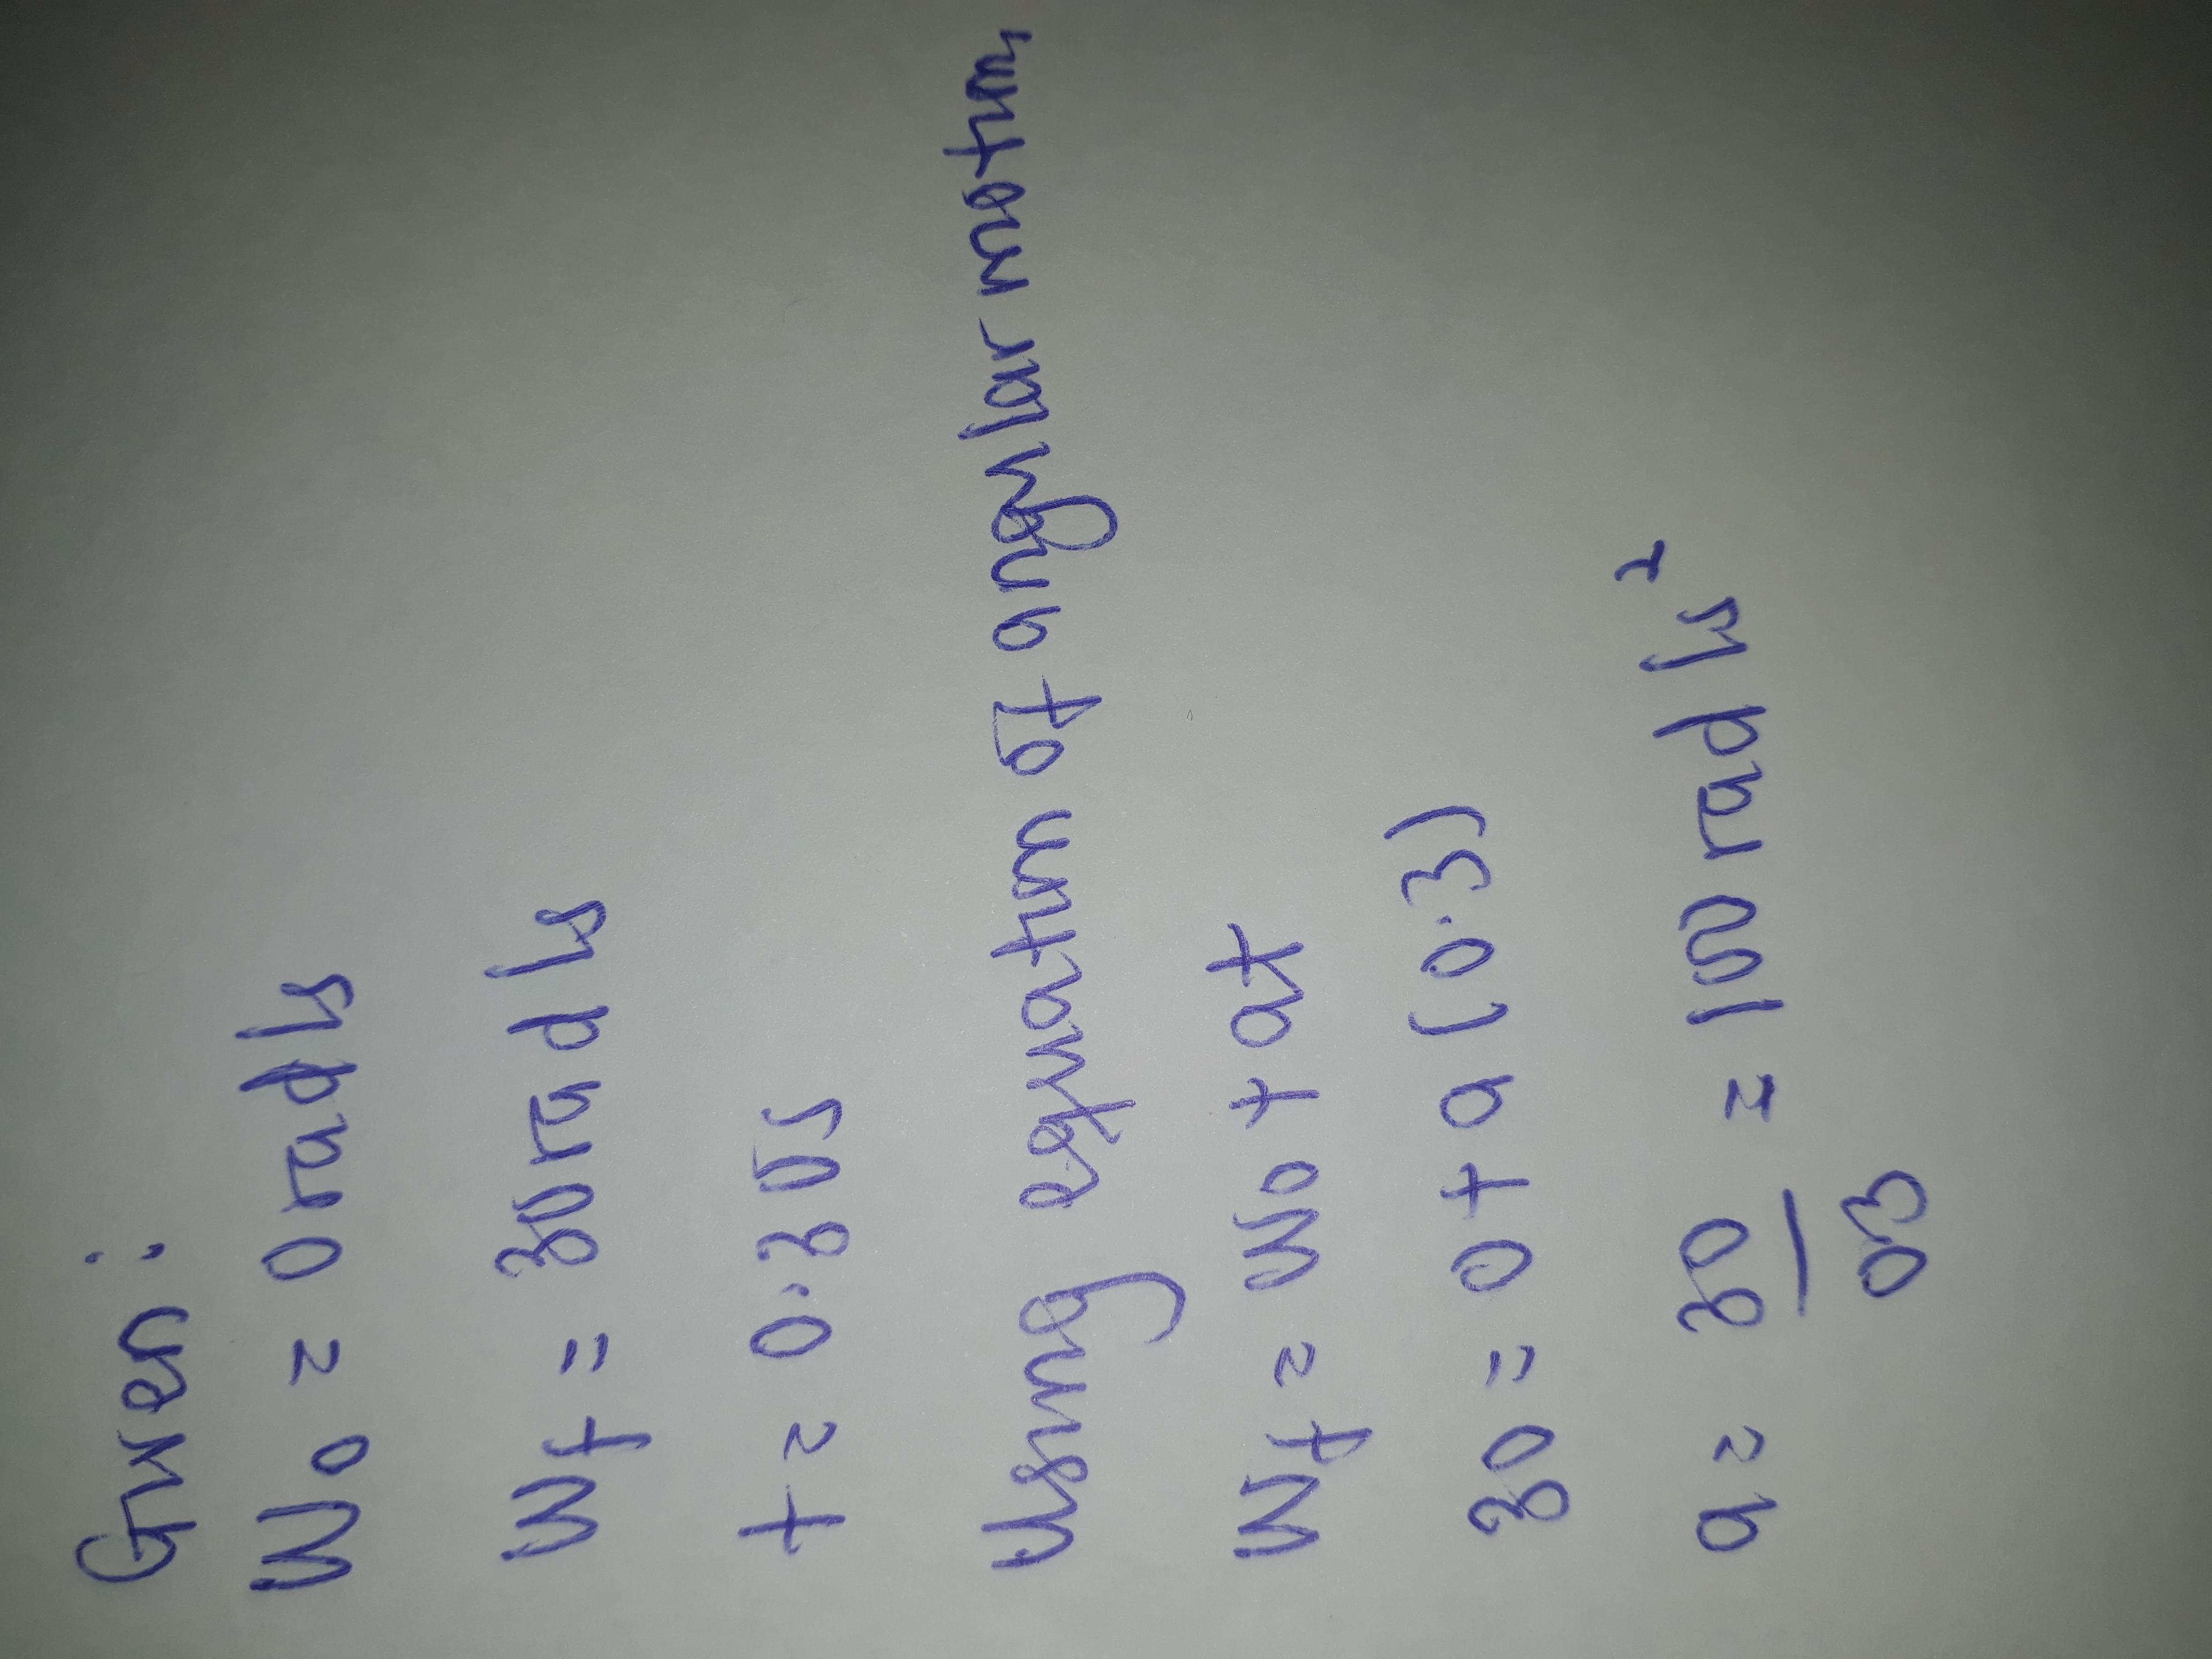 Given:
W₀ = 0 rad/s
Wf = 30 rad/s
t = 0.30s
Using equation of angular motion
Wf = W₀ + at
30 = 0 + a (0.3)
a = 30/0.3 = 100 rad/s²